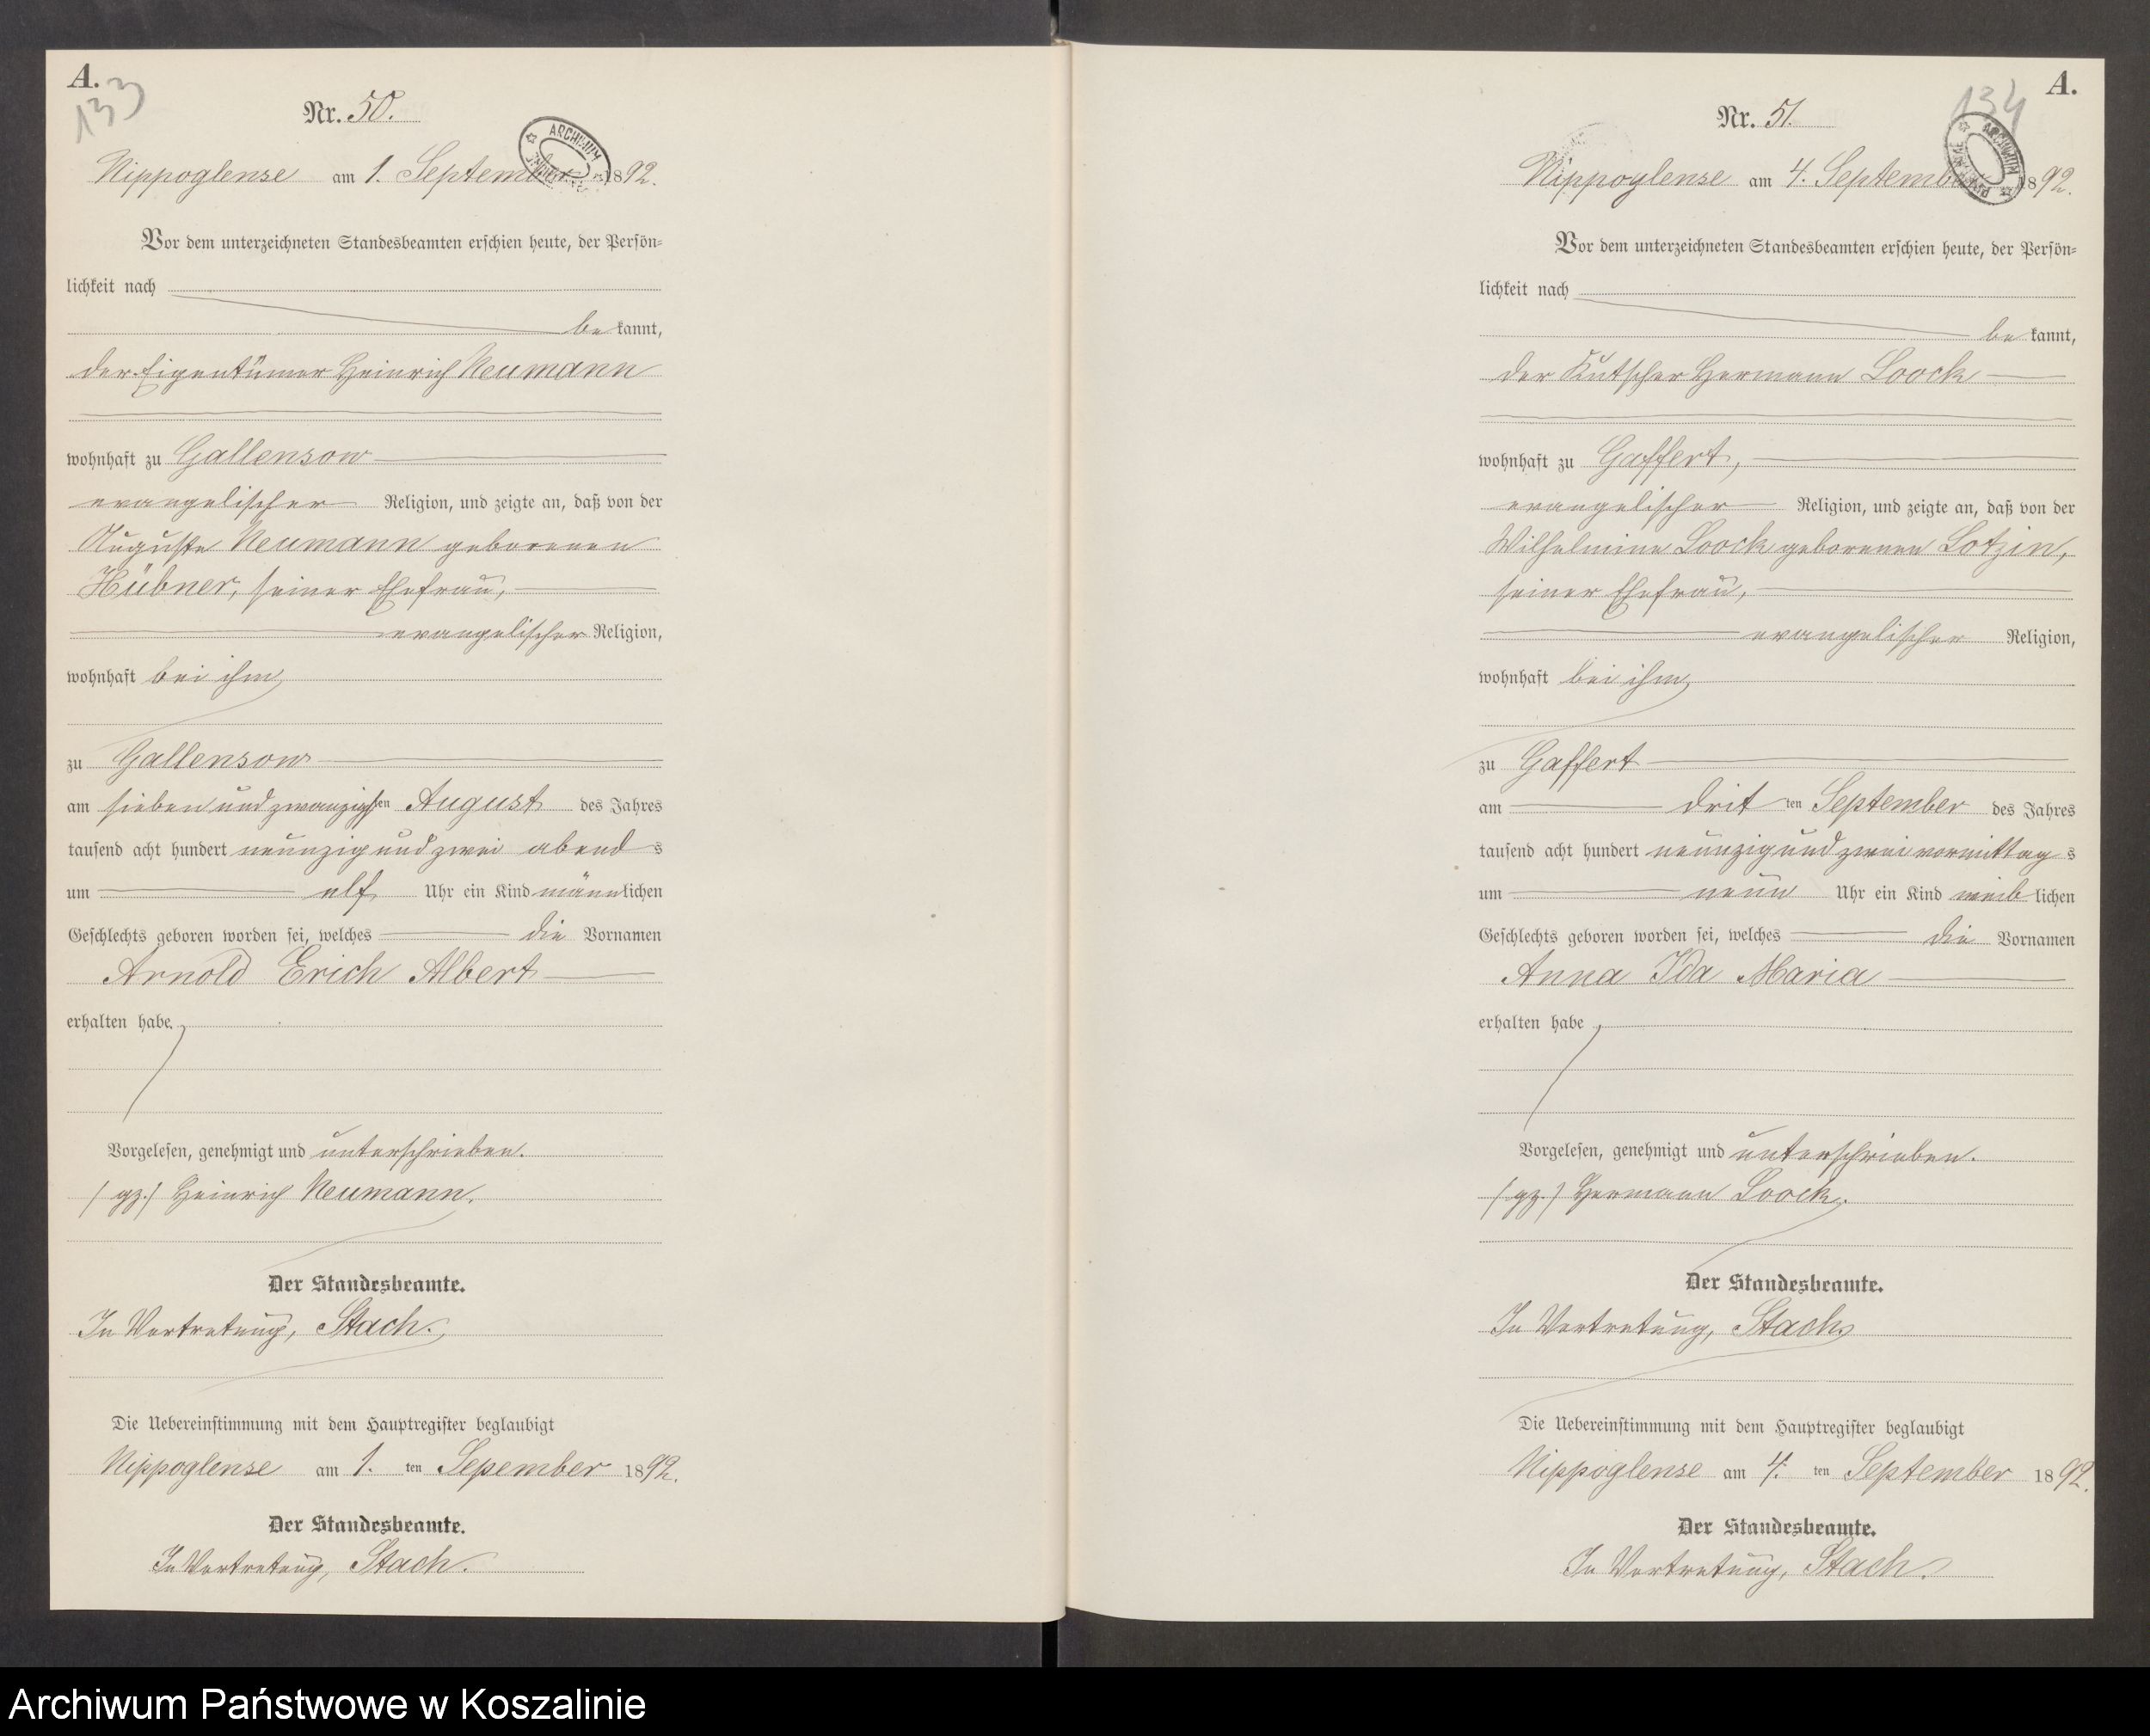 A.
133
Nr. 50.
Nippoglense am 1. September 1892.
Vor dem unterzeichneten Standesbeamten erschien heute, der Persön-
lichkeit nach
be kannt,
der Eigentümer Heinrich Neumann
wohnhaft zu Gallensow
evangelischer Religion, und zeigte an, daß von der
Auguste Neumann geborenen
Hübner, seiner Ehefrau,
evangelischer Religion,
wohnhaft bei ihm,
zu Gallensow
am sieben und zwanzigsten August des Jahres
tausend acht hundert neunzig und zwei abend s
um elf Uhr ein Kind männlichen
Geschlechts geboren worden sei, welches die Vornamen
Arnold Erich Albert
erhalten habe.
Vorgelesen, genehmigt und unterschrieben.
(gz.) Heinrich Neumann.
Der Standesbeamte.
In Vertretung, Stach.
Die Uebereinstimmung mit dem Hauptregister beglaubigt
Nippoglense am 1. ten Sepember 1892.
Der Standesbeamte.
In Vertretung, Stach.
A.
134
Nr. 51.
Nippoglense am 4. September 1892.
ARCHIWUM
Vor dem unterzeichneten Standesbeamten erschien heute, der Persön-
lichkeit nach
be kannt,
der Kutscher Hermann Loock
wohnhaft zu Gaffert,
evangelischer Religion, und zeigte an, daß von der
Wilhelmine Loock geborenen Lotzin,
seiner Ehefrau,
evangelischer Religion,
wohnhaft bei ihm,
zu Gaffert
am drit ten September des Jahres
tausend acht hundert neunzig und zwei vormittag s
um neun Uhr ein Kind weib lichen
Geschlechts geboren worden sei, welches die Vornamen
Anna Ida Maria
erhalten habe
Vorgelesen, genehmigt und unterschrieben.
(gz.) Hermann Loock.
Der Standesbeamte.
In Vertretung, Stach
Die Uebereinstimmung mit dem Hauptregister beglaubigt
Nippoglense am 4. ten September 1892.
Der Standesbeamte.
In Vertretung, Stach.
Archiwum Państwowe w Koszalinie